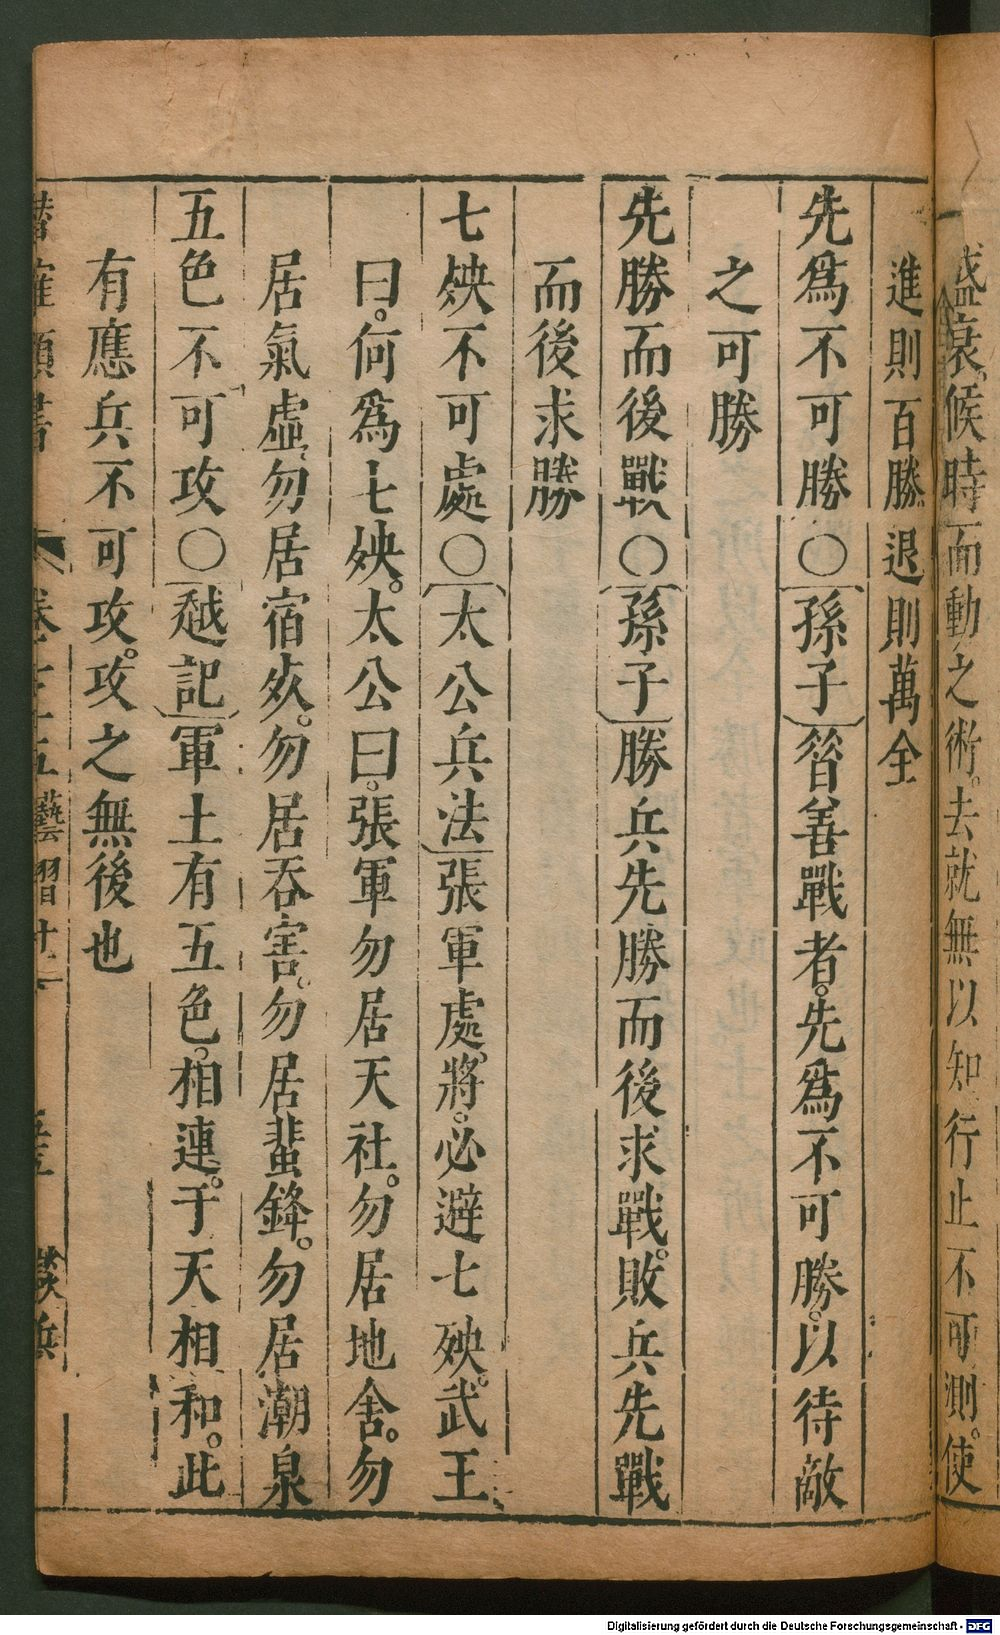 盛衰。候時而動之術。去就無以知行止不可測。使
進則百勝退則萬全
先爲不可勝○孫子昝善戰者。先爲不可勝。以待敵
之可勝
先勝而後戰○孫子勝兵先勝而後求戰。敗兵先戰
而後求勝
七殃不可處○太公兵法張軍處。將。必避七殃。武王
曰。何爲七殃。太公曰。張軍勿居天社。勿居地舍。勿
居氣虛。勿居宿灾。勿居吞害。勿居蜚鋒。勿居潮泉
五色不可攻○越記軍土有五色。相連。于天相和。此
有應兵不可攻。攻之無後也
潛確類書 卷七十五藝習十
談兵
Digitalisierung gefördert durch die Deutsche Forschungsgemeinschaft - DFG